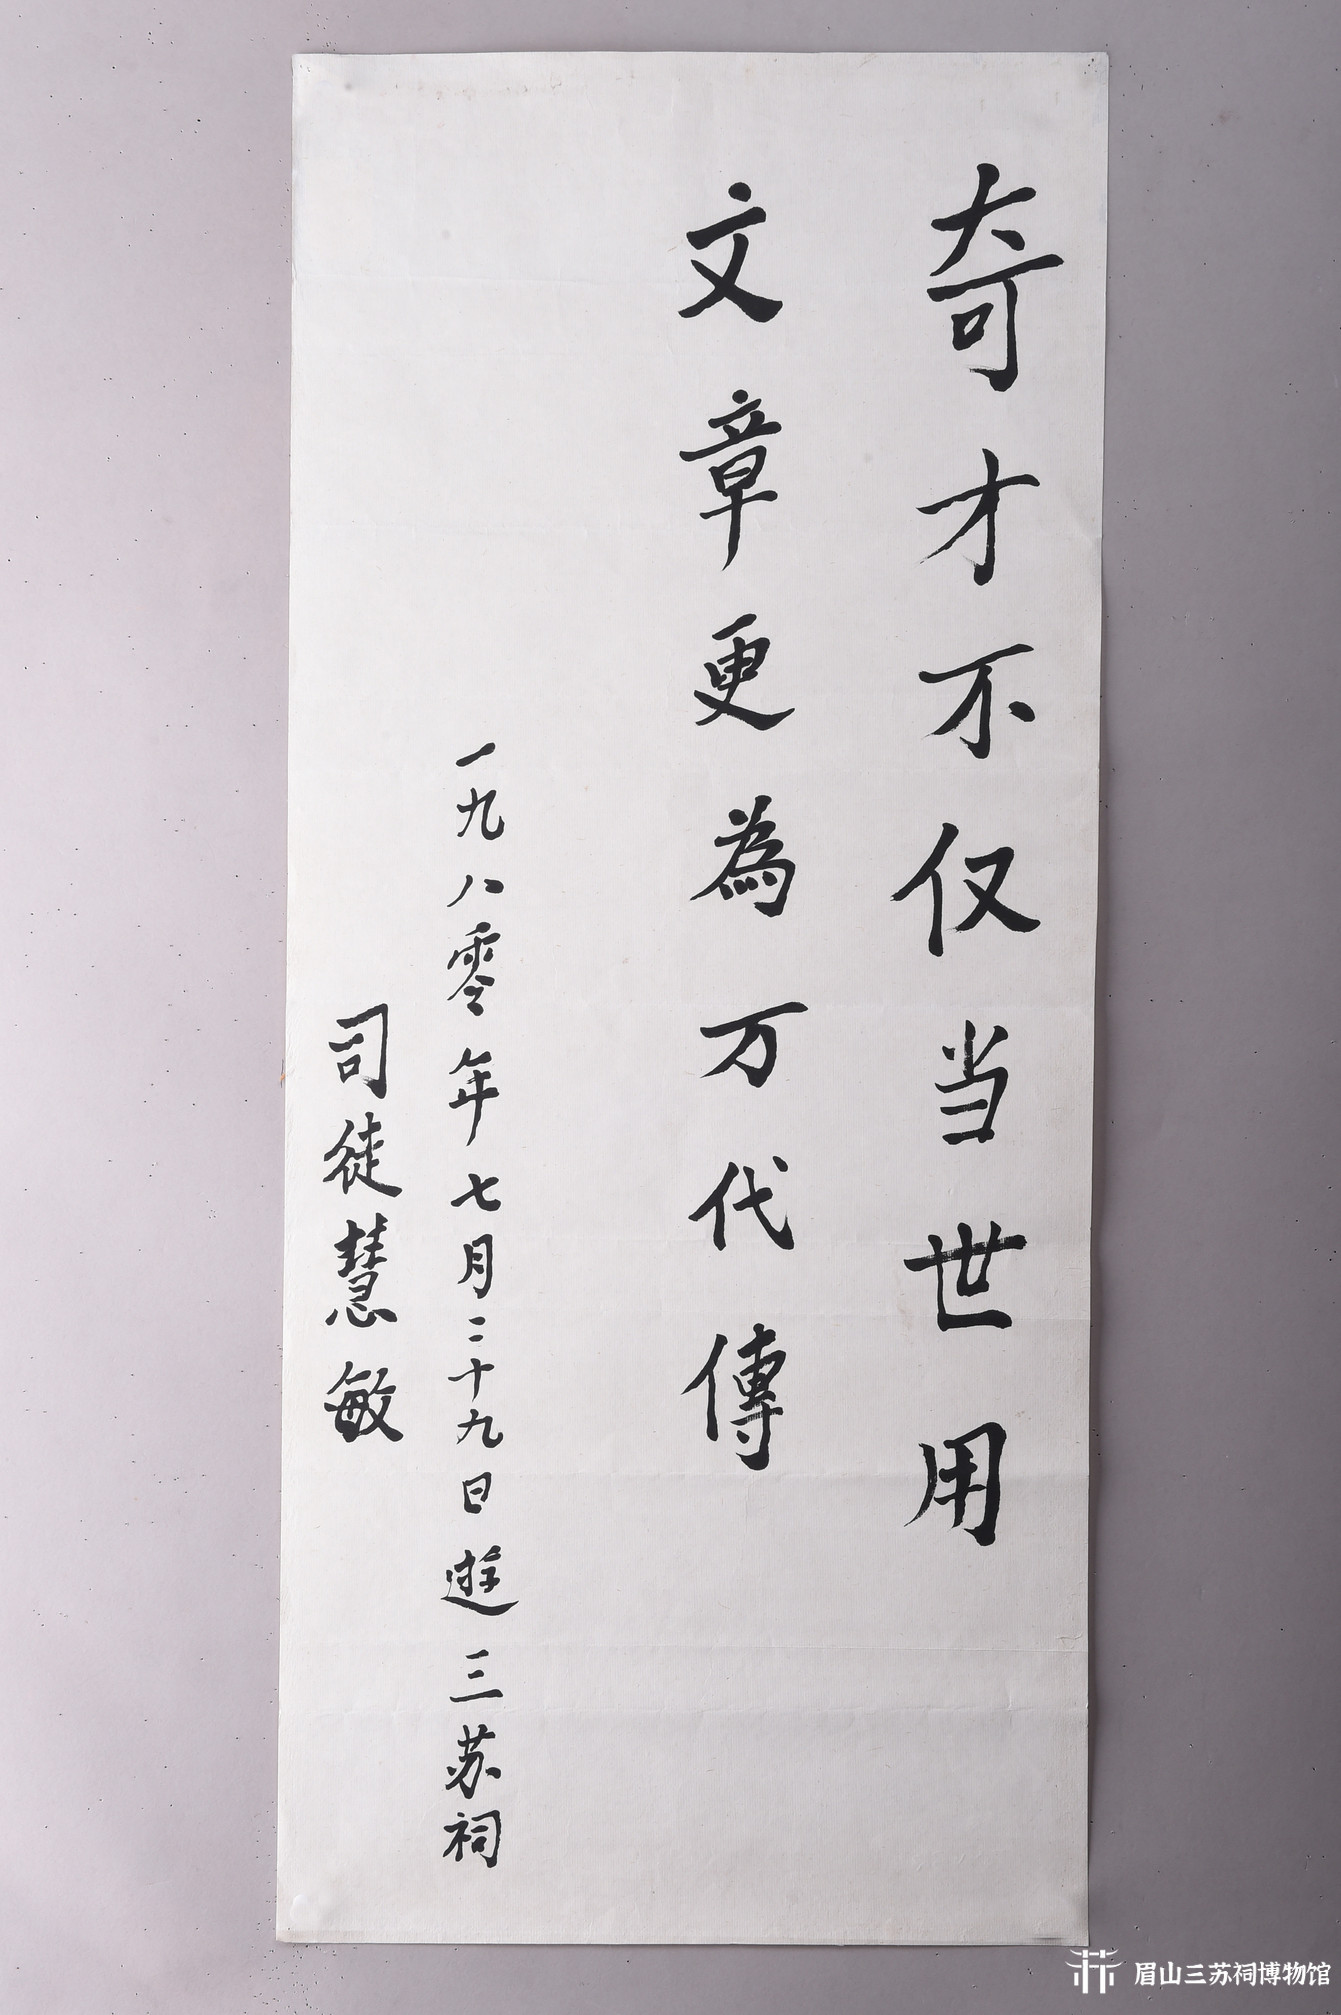 奇才不仅当世用
文章更為万代傳
一九八零年七月二十九日遊三苏祠
司徒慧敏
眉山三苏祠博物馆